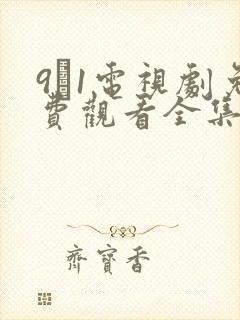 9 1電視劇免
費觀看全集
齊寶香